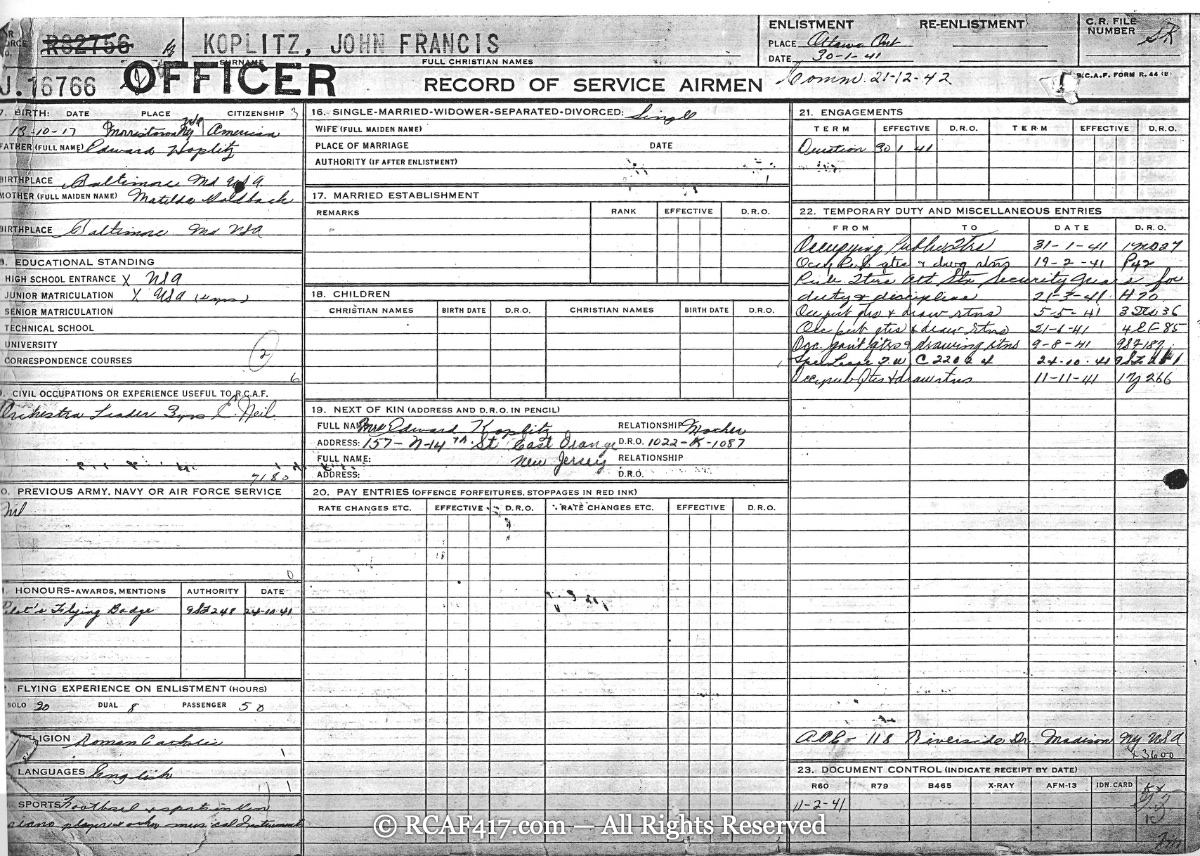 R82756
KOPLITZ, JOHN FRANCIS
SURNAME FULL CHRISTIAN NAMES
ENLISTMENT RE-ENLISTMENT
PLACE Ottawa Ont
DATE 30-1-41
C.R. FILE
NUMBER
J.16766 OFFICER RECORD OF SERVICE AIRMEN
Comm. 21-12-42
R.C.A.F. FORM R. 44
BIRTH: DATE PLACE CITIZENSHIP
13-10-17 Morristown American
FATHER (FULL NAME) Edward Koplitz
BIRTHPLACE Baltimore Md USA
MOTHER (FULL MAIDEN NAME) Matilda
BIRTHPLACE Baltimore Md USA
EDUCATIONAL STANDING
HIGH SCHOOL ENTRANCE X USA
JUNIOR MATRICULATION X USA
SENIOR MATRICULATION
TECHNICAL SCHOOL
UNIVERSITY
CORRESPONDENCE COURSES
2
6
CIVIL OCCUPATIONS OR EXPERIENCE USEFUL TO R.C.A.F.
Orchestra Leader 3yrs
7180
PREVIOUS ARMY, NAVY OR AIR FORCE SERVICE
Nil
0
HONOURS-AWARDS, MENTIONS AUTHORITY DATE
Pilot's Flying Badge 9SF248 24-10-41
FLYING EXPERIENCE ON ENLISTMENT (HOURS)
SOLO 20 DUAL 8 PASSENGER 50
RELIGION Roman Catholic
1
LANGUAGES English
1
SPORTS Football
piano player & other musical Instruments
16. SINGLE-MARRIED-WIDOWER-SEPARATED-DIVORCED: Single
WIFE (FULL MAIDEN NAME)
PLACE OF MARRIAGE DATE
AUTHORITY (IF AFTER ENLISTMENT)
17. MARRIED ESTABLISHMENT
REMARKS RANK EFFECTIVE D.R.O.
18. CHILDREN
CHRISTIAN NAMES BIRTH DATE D.R.O. CHRISTIAN NAMES BIRTH DATE D.R.O.
19. NEXT OF KIN (ADDRESS AND D.R.O. IN PENCIL)
FULL NAME: Mrs Edward Koplitz RELATIONSHIP Mother
ADDRESS: 157-N-14th St East Orange D.R.O. 1022-K-1087
FULL NAME: New Jersey RELATIONSHIP
ADDRESS: D.R.O.
20. PAY ENTRIES (OFFENCE FORFEITURES, STOPPAGES IN RED INK)
RATE CHANGES ETC. EFFECTIVE D.R.O. RATE CHANGES ETC. EFFECTIVE D.R.O.
21. ENGAGEMENTS
TERM EFFECTIVE D.R.O. TERM EFFECTIVE D.R.O.
Duration 30 1 41
22. TEMPORARY DUTY AND MISCELLANEOUS ENTRIES
FROM TO DATE D.R.O.
Occupying Public Qtrs 31-1-41
19-2-41 P42
Security Guard for
duty & discipline 21-3-41 H70
Occ pub qtrs & draw rtns 5-5-41
Occ pub qtrs & draw rtns 21-6-41
drawing rtns 9-8-41
24-10-41
Occ pub Qtrs & draw rtns 11-11-41
118 Riverside Dr. Madison NY USA
23. DOCUMENT CONTROL (INDICATE RECEIPT BY DATE)
R60 R79 B465 X-RAY AFM-13 IDN.CARD
11-2-41
© RCAF417.com — All Rights Reserved